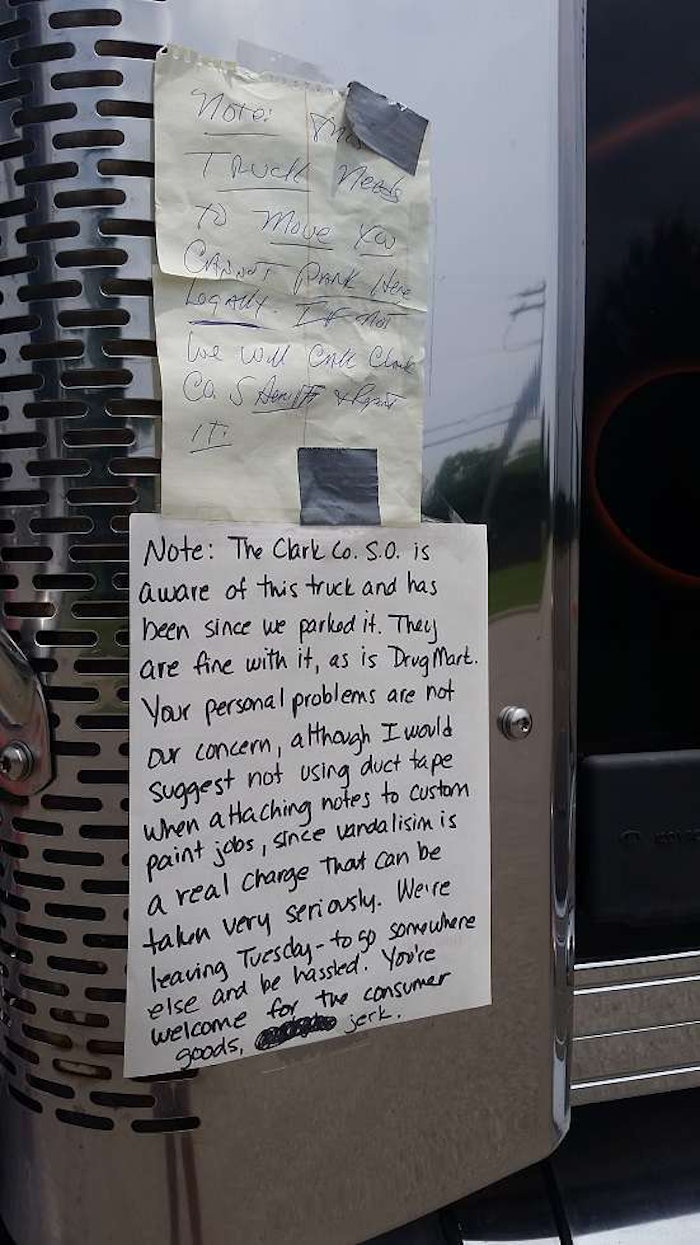 Note: This
Truck Needs
to Move You
Cannot Park Here
Legally. If not
We will Call Clark
Co. Sheriff & Report
IT.
Note: The Clark Co. S.O. is
aware of this truck and has
been since we parked it. They
are fine with it, as is Drug Mart.
Your personal problems are not
our concern, although I would
suggest not using duct tape
when attaching notes to custom
paint jobs, since vandalisim is
a real charge that can be
taken very seriously. We're
leaving Tuesday - to go somewhere
else and be hassled. You're
welcome for the consumer
goods, jerk.